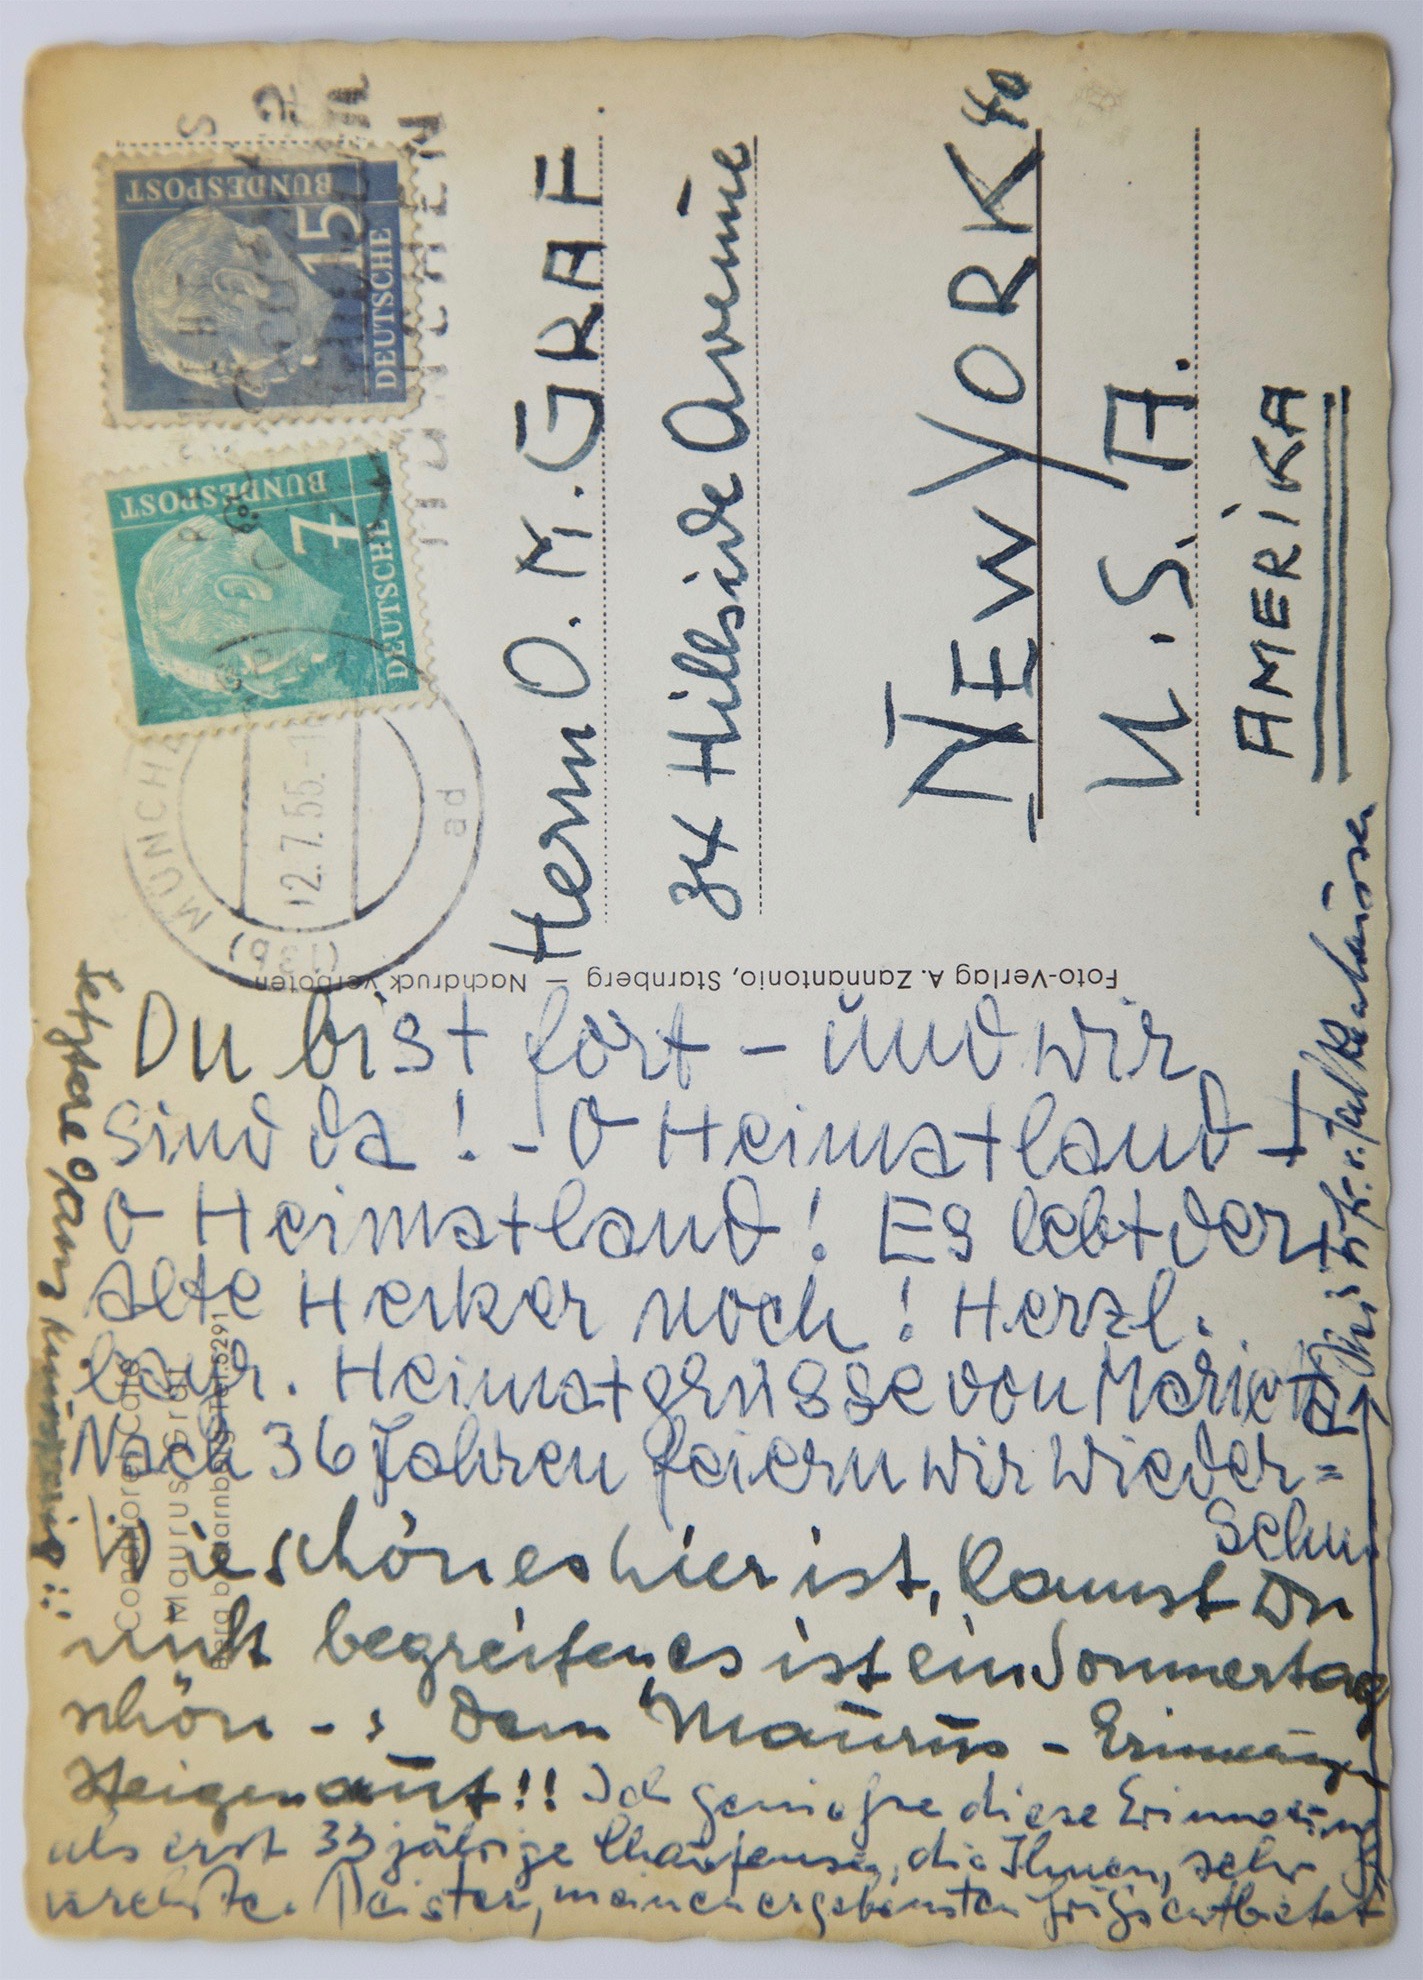 Du bist fort – und wir
sind da! – O Heimatland –
O Heimatland! Es lebt der
alte Herker noch! Herzl.
bayr. Heimatgrüsse von Marietta
Nach 36 Jahren feiern wir Wieder=
sehn
Wie schön es hier ist, kannst Du
nicht begreifen, es ist ein Sommertag
schön – Dein Maurus – Erinnerungen
steigen auf!! Ich genieße diese Erinnerung
als erst 33 jährige die Ihnen, sehr
verehrter Meister, meinen ergebensten Gruß entbietet
ganz
Conditorei-Café
Maurus Graf
Berg b. Starnberg Tel. 5291
Foto-Verlag A. Zannantonio, Starnberg – Nachdruck verboten
(13b) MÜNCHEN
12.7.55.-1
ad
MÜNCHEN
DEUTSCHE
BUNDESPOST
7
DEUTSCHE
BUNDESPOST
15
Herrn O. M. GRAF.
34 Hillside Avenue
NEW YORK 40
U.S.A.
AMERIKA